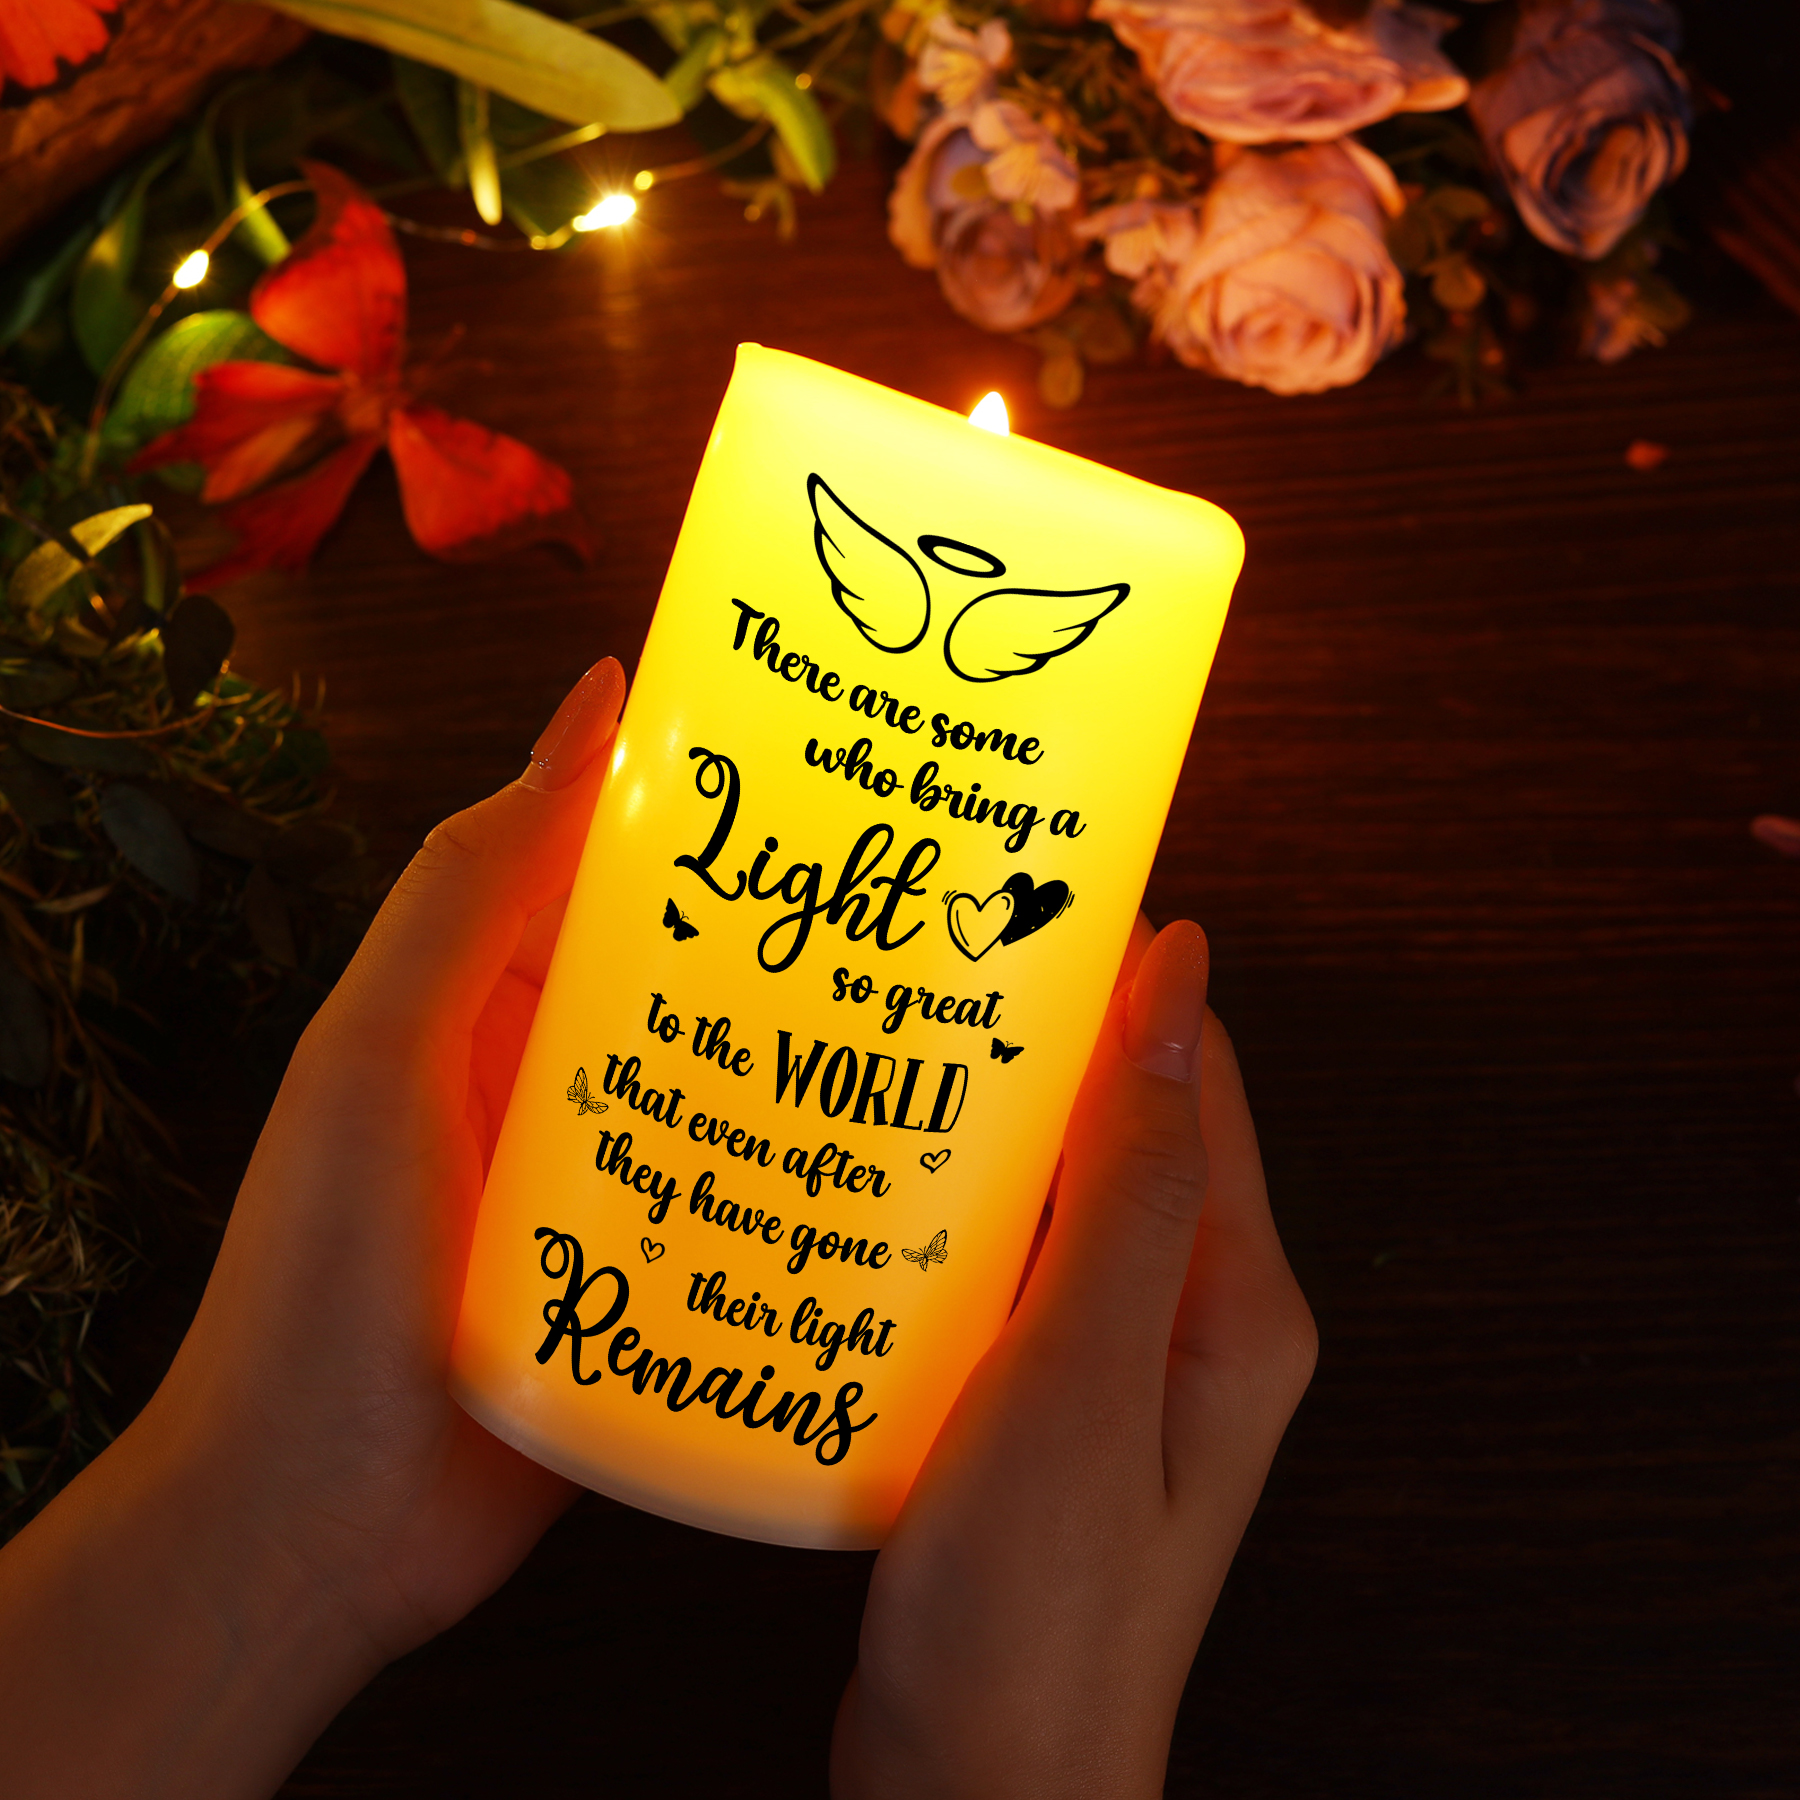 There are some
who bring a
Light
so great
to the WORLD
that even after
they have gone
their light
Remains